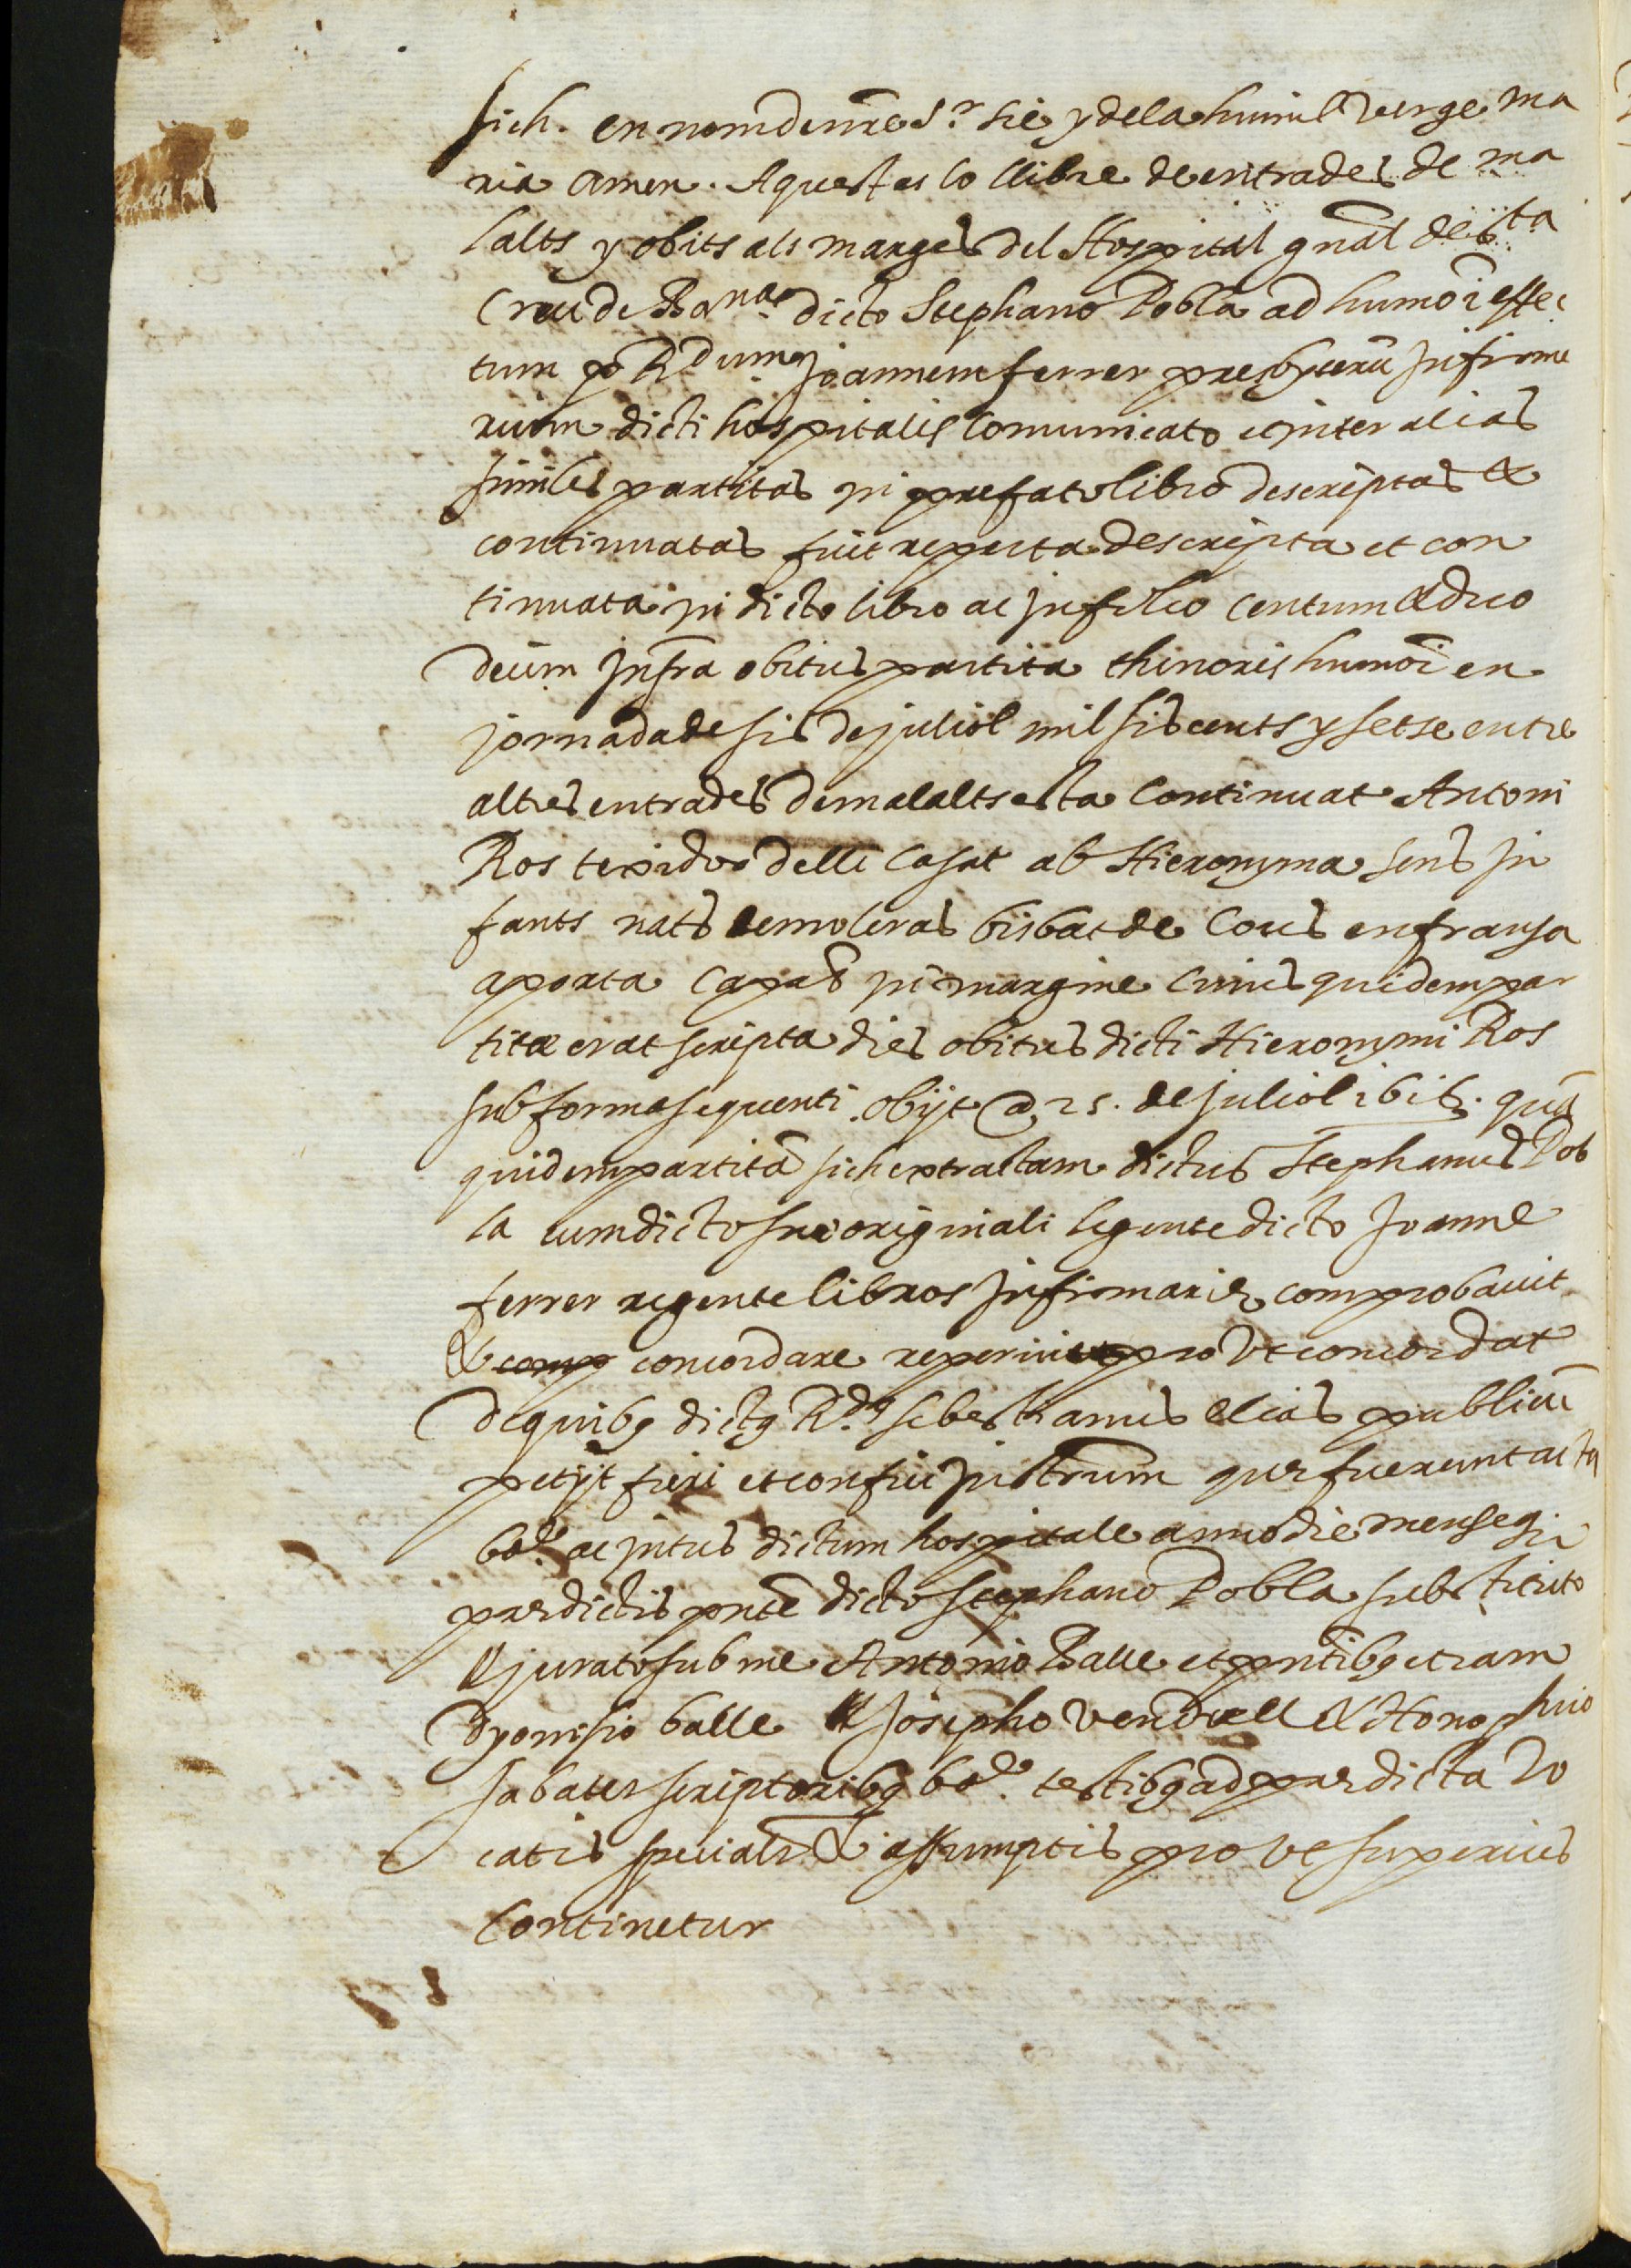 sich. en nom de nr̃e S.r sie y dela humil verge ma
ria amen. Aquest es lo llibre de entrades de ma
lalts y obits als marges del Hospital gñal de sta
Creu de Bar.na dicto Stephano Pobla ad humõi effec
tum p R.dum Joannem ferrer presbyterũ Infirme
rium dicti hospitalis Comunicato et inter alias
similes partitas in prefato libro descriptas &
continuatas fuit reperta descripta et con
tinuata in dicto libro ac in folio centum & duo
decim Infra obitus partita thenoris humõi en
jornada de sis de juliol mil siscents y setse entre
altres entrades de malalts esta Continuat Antoni
Ros texidor de lli Casat ab Hieronyma sens in
fants nats de moleras bisbat de Cous en fransa
aporta capas in margine Cuius quidem par
titæ erat scripta dies obitus dicti Hieronymi Ros
sub forma sequenti. obijt a 25. de juliol 1616. quã
quidem partitã sich extractam dictus Stephanus Pob
la cum dicto suo originali legente dicto Joanne
ferrer regente libros Infirmarie comprobavit
& comp concordare reperiit prout concordat
de quibq dictq R.dq sebestianus elias publicũ
petijt fieri et confici Instrum̃ que fuerunt acta
b.e ac intus dictum hospitale anno die mense qi
predictis pnte dicto Stephano Pobla substituto
& jurato sub me Antonio Batle et pntibq etiam
dyonisio balle & Josepho vendrell & Honophrio
sabater scriptoribq b.e testibq ad predicta vo
catis specialr & assumptis prout superius
Continetur